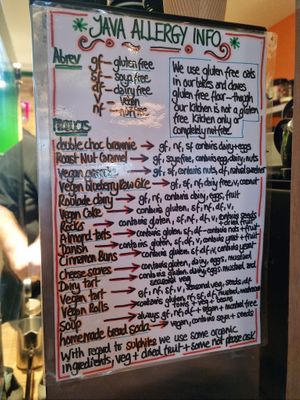 JAVA ALLERGY INFO
Abrev
gf - gluten free
sf - soya free
df - dairy free
v - vegan
nf - nut free
We use gluten free oats
in our bakes and doves
gluten free flour - though
our kitchen is not a gluten
free kitchen only or
completely nut free.
PRODUCTS
double choc brownie → gf, nf, sf contains dairy + eggs
Roast Nut Caramel → gf, soya free, contains egg, dairy, nuts
Vegan → gf, sf, contains nuts, df, natural sweetner
Vegan blueberry Raw Cake → gf, nf, dairy free, v, coconut
Roulade → gf, nf, contains dairy, eggs, fruit
Vegan Cake → contains gluten, sf, nf, df, v,
Rocks → contains gluten, sf, nf, df, v, contains seeds
Almond tarts → contains gluten, sf, df - contains nuts + fruit
Danish → contains gluten, sf, df, v, contains yeast + fruit
Cinnamon Buns → contains gluten, sf, df, contains yeast
Cheese scones → contains gluten, dairy, eggs, mustard
Dairy tart → contains gluten, dairy, eggs, mustard, and
seasonal veg
Vegan tart → gf, nf, sf, v, seasonal veg,
Vegan Rolls → contains gluten, nf, sf, df,
+ veg + beans
Soup → always gf, nf, df + vegan + mustard free
homemade bread soda → vegan, contains soya + seeds
With regard to sulphites we use some organic
ingredients, veg + dried fruit + some not please ask